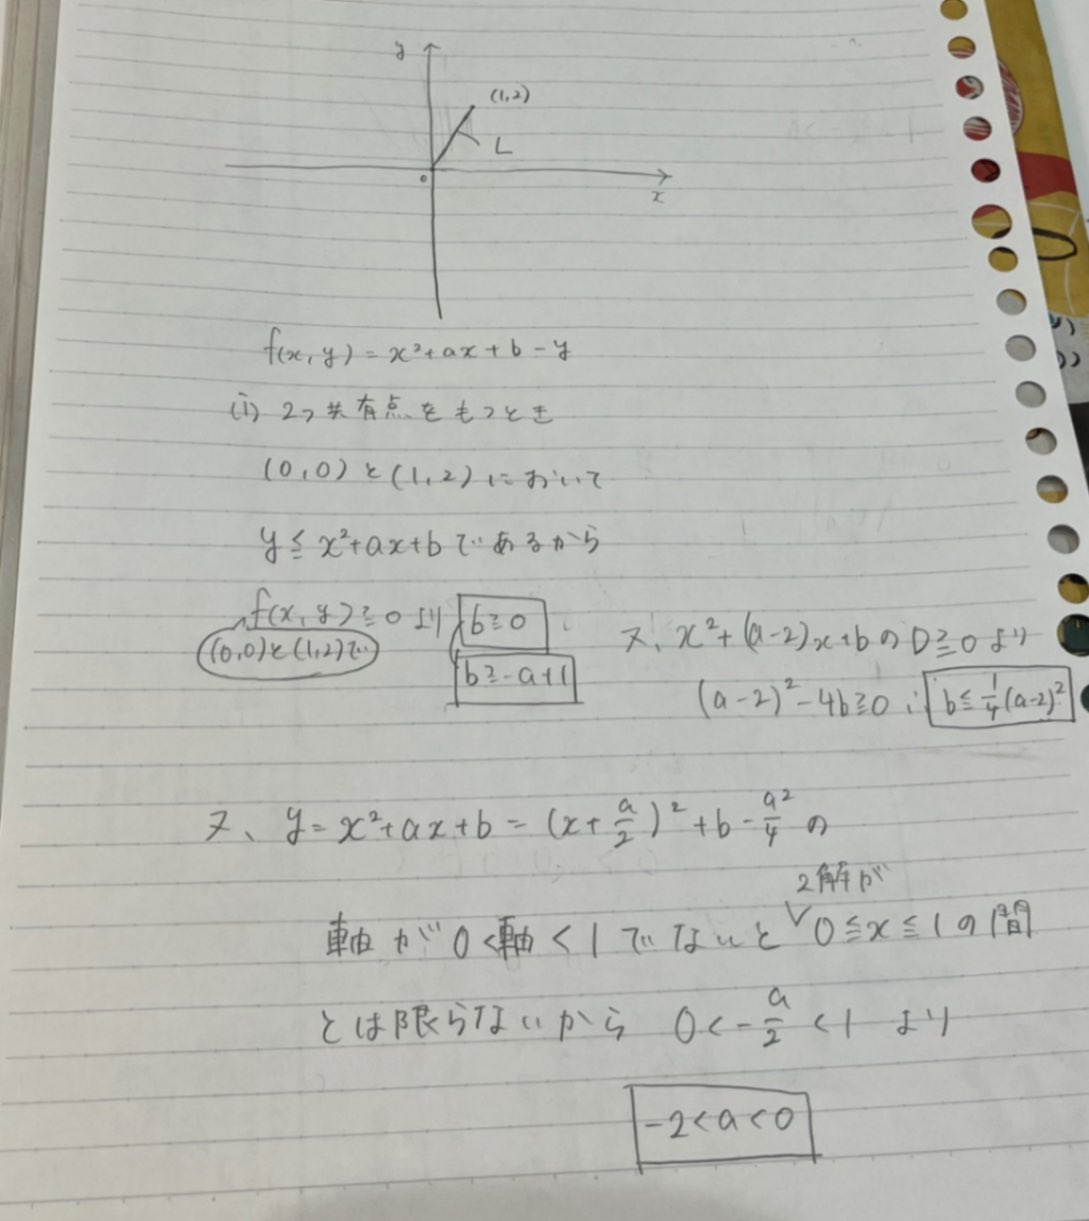 y
(1,2)
L
o
x
f(x,y)=x²+ax+b-y
(i) 2つ共有点をもつとき
(0,0)と(1,2)において
y≦x²+ax+bであるから
f(x,y)≧0より b≧0
(0,0)と(1,2)で
b≧-a+1
又、x²+(a-2)x+bのD≧0より
(a-2)²-4b≧0 ∴ b≦1/4(a-2)²
又、y=x²+ax+b=(x+a/2)²+b-a²/4の
2解が
軸が0<軸<1でないと 0≦x≦1の間
とは限らないから 0<-a/2<1 より
-2<a<0